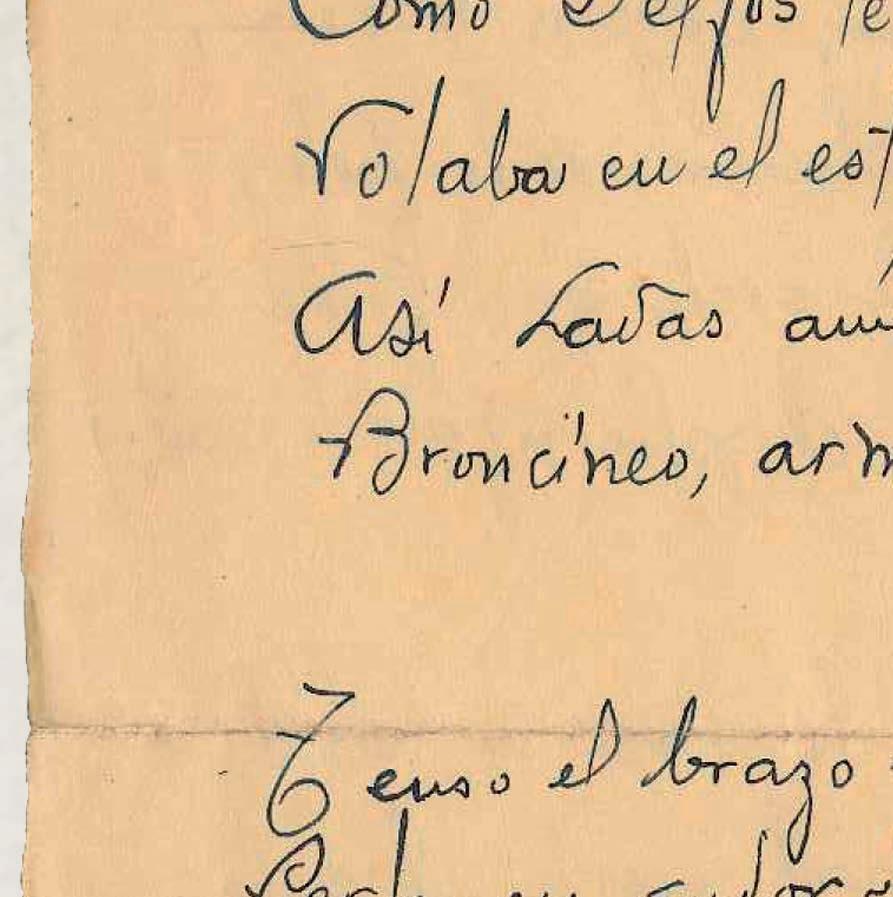 Como Delfos
Volaba en el est
Así Ladas aún
Broncíneo, arm
Tenso el brazo
en